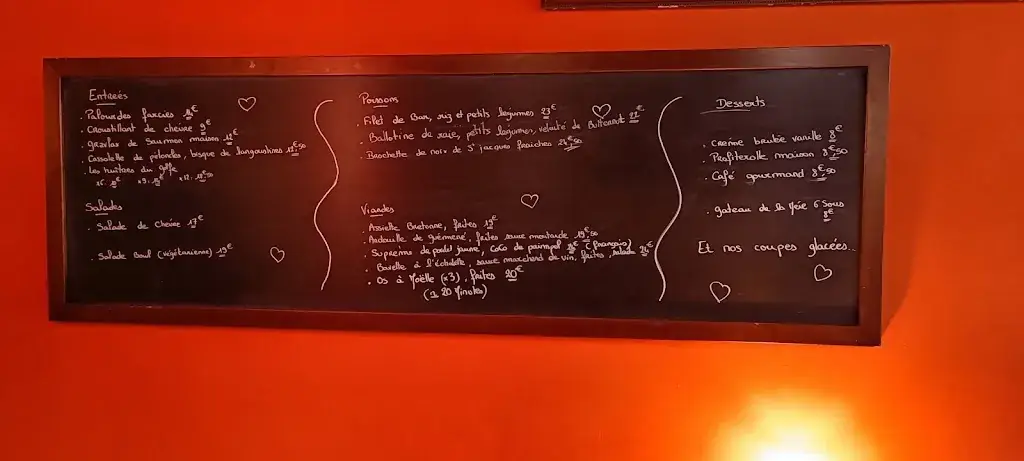 Entrées
. Palourdes farcies €
. Croustillant de chèvre 9€
. Gravlax de Saumon maison 12€
. Cassolette de pétoncles, bisque de langoustines 12€,50
. Les huîtres du golfe
x6: € x9: € x12: ,50
Salades
. Salade de Chèvre 17€
. Salade Boul (végétarienne) 19€
Poissons
. Filet de Bar, riz et petits légumes 23€
. Ballotine de raie, petits légumes, velouté de Butternut 22€
. Brochette de noix de St jacques fraîches 24€,50
Viandes
. Assiette Bretonne, frites 19€
. Andouille de guémené, frites sauce moutarde 19€50
. Suprême de poulet jaune, coco de paimpol € (français)
. Bavette à l'échalotte, sauce marchand de vin, frites, salade 24€
. Os à Moëlle (x3), frites 20€
(± 20 Minutes)
Desserts
. crème brulée vanille 8€
. Profiterolle maison 8€,50
. Café gourmand 8€,50
. gateau de la Mère 6 Sous
8€
Et nos coupes glacées..